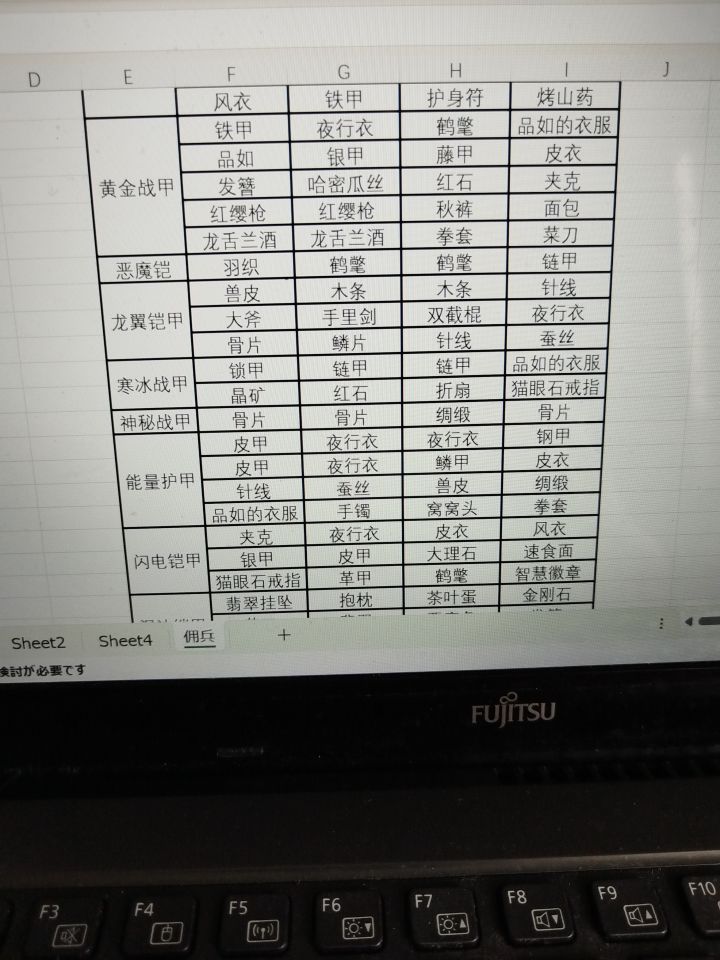 D E F G H I J
风衣 铁甲 护身符 烤山药
黄金战甲 铁甲 夜行衣 鹤氅 品如的衣服
品如 银甲 藤甲 皮衣
发簪 哈密瓜丝 红石 夹克
红缨枪 红缨枪 秋裤 面包
龙舌兰酒 龙舌兰酒 拳套 菜刀
恶魔铠 羽织 鹤氅 鹤氅 链甲
龙翼铠甲 兽皮 木条 木条 针线
大斧 手里剑 双截棍 夜行衣
骨片 鳞片 针线 蚕丝
寒冰战甲 锁甲 链甲 链甲 品如的衣服
晶矿 红石 折扇 猫眼石戒指
神秘战甲 骨片 骨片 绸缎 骨片
能量护甲 皮甲 夜行衣 夜行衣 钢甲
皮甲 夜行衣 鳞甲 皮衣
针线 蚕丝 兽皮 绸缎
品如的衣服 手镯 窝窝头 拳套
闪电铠甲 夹克 夜行衣 皮衣 风衣
银甲 皮甲 大理石 速食面
猫眼石戒指 革甲 鹤氅 智慧徽章
翡翠挂坠 抱枕 茶叶蛋 金刚石
Sheet2 Sheet4 佣兵 +
検討が必要です
FUJITSU
F3 F4 F5 F6 F7 F8 F9 F10